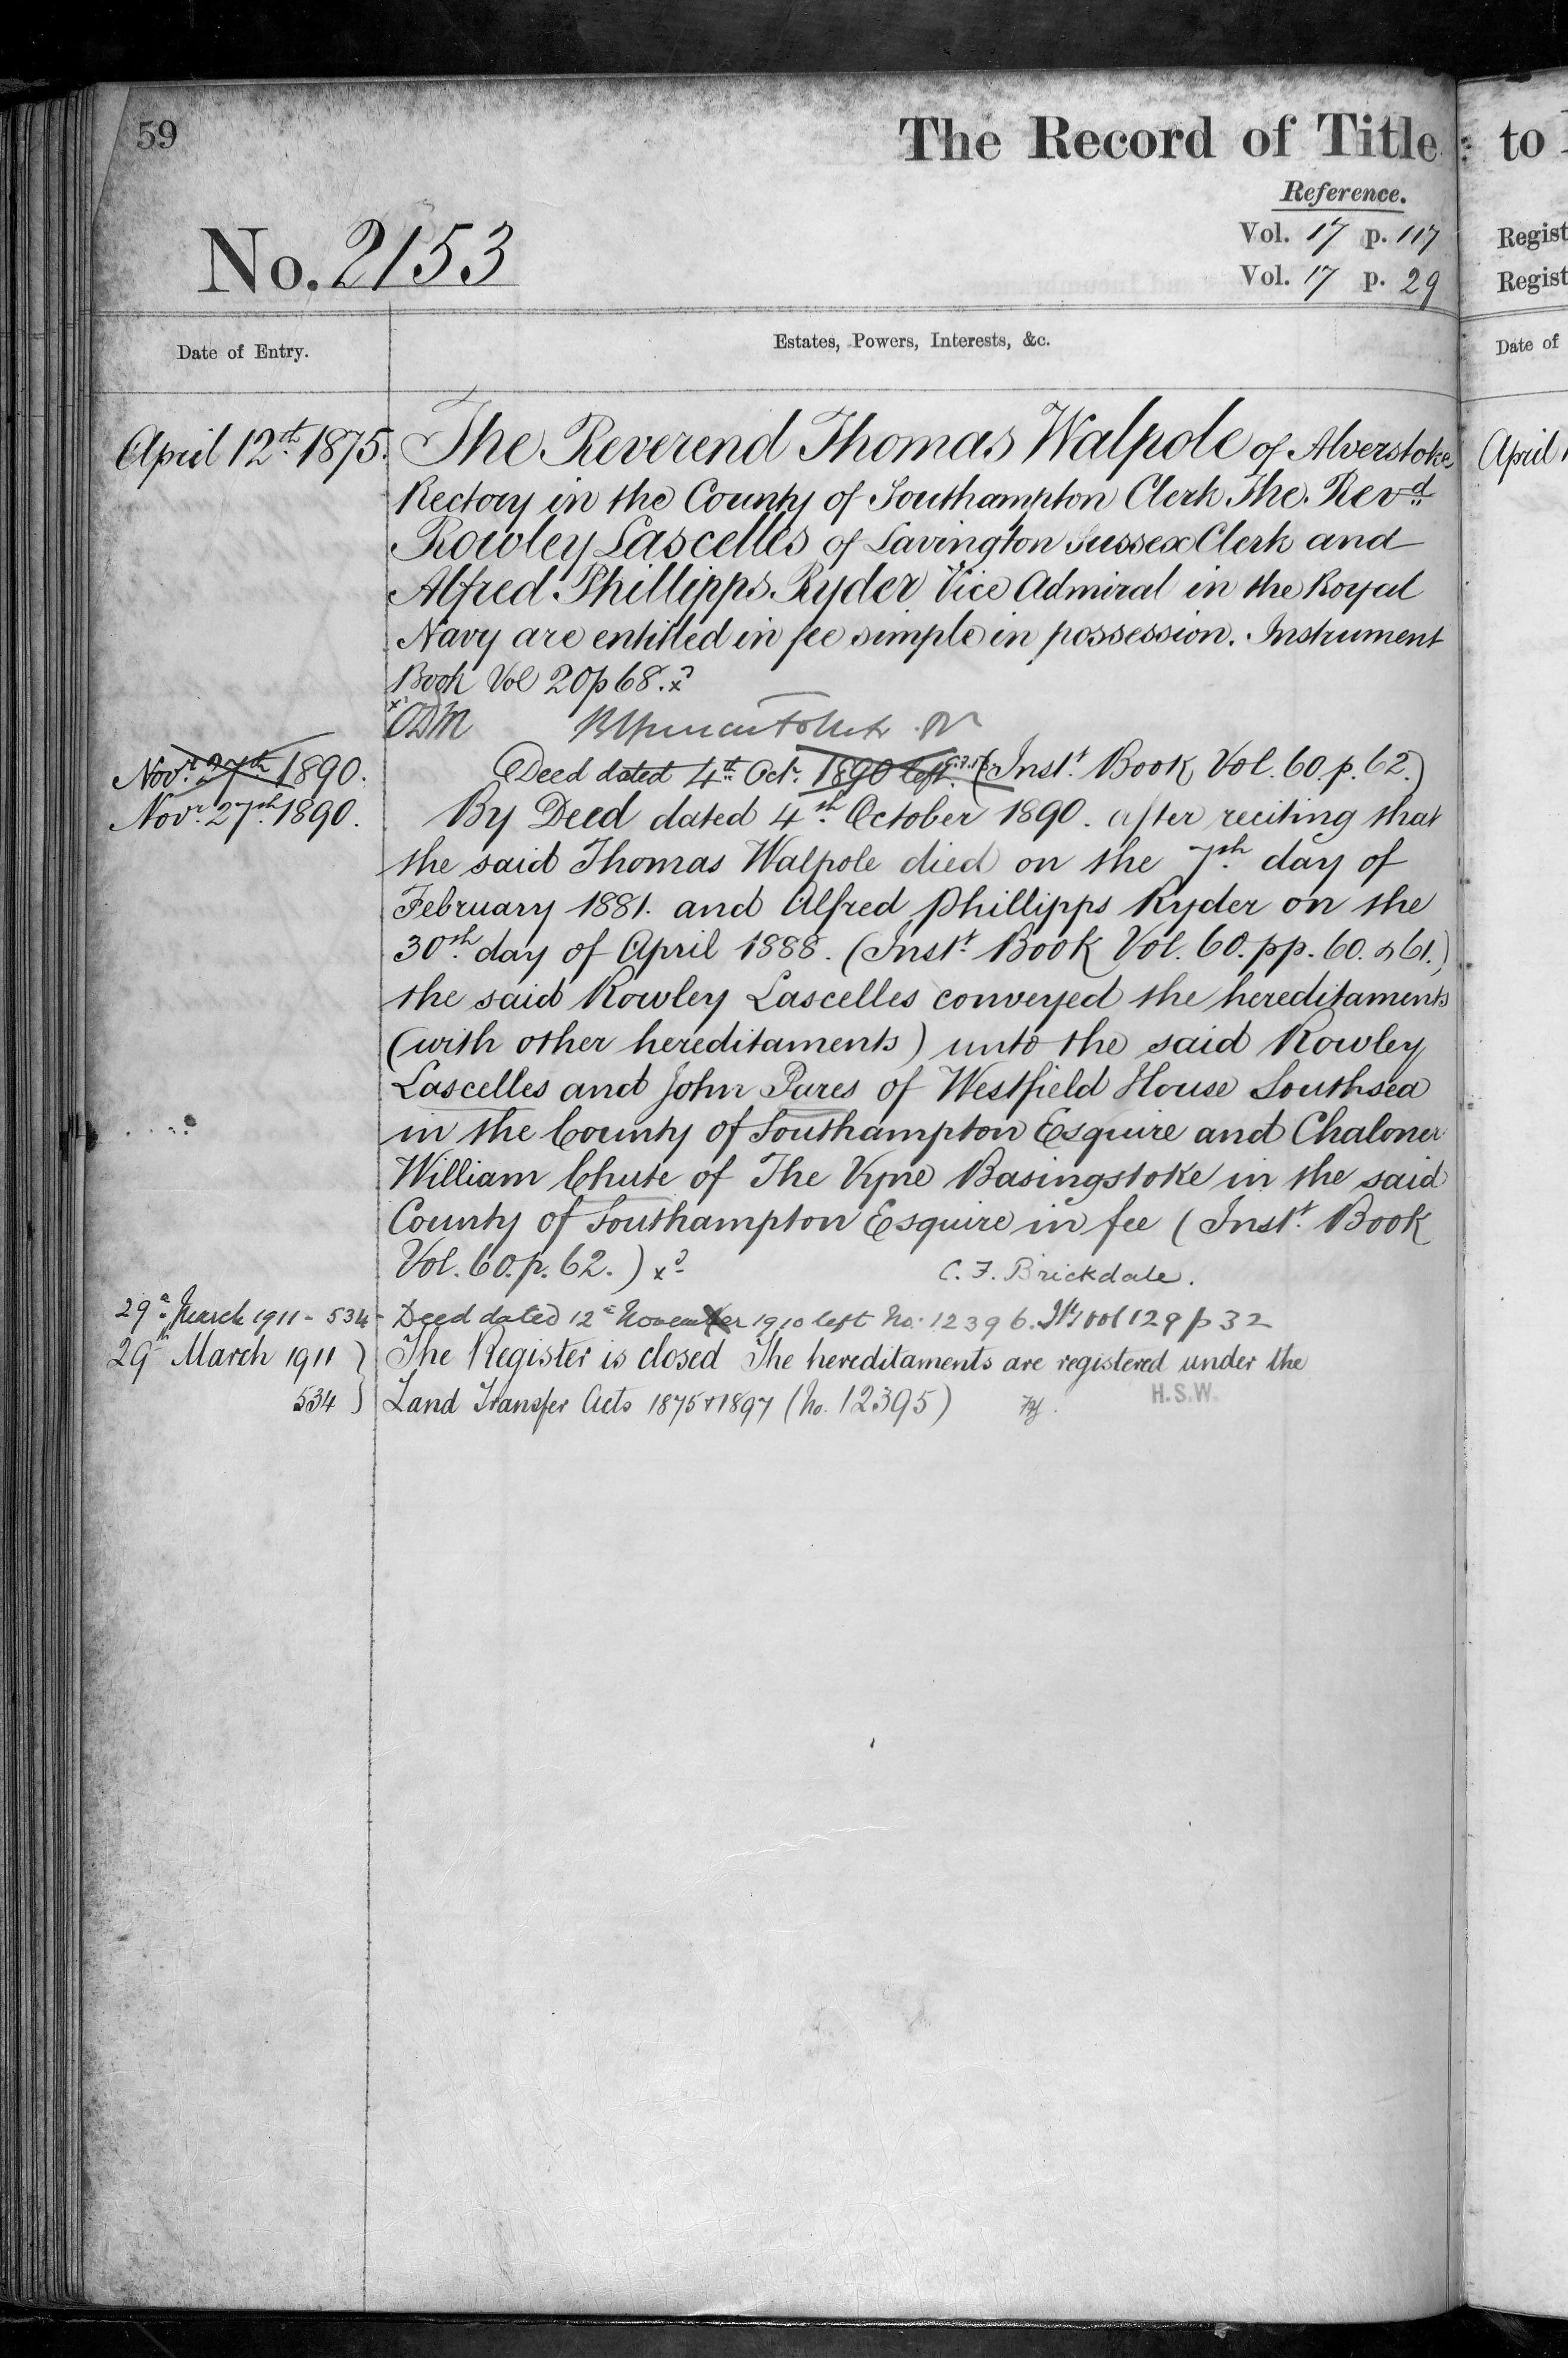 59
The Record of Title : to
Reference.
No. 2153
Vol. 17 p. 117
Vol. 17 p. 29
Regist
Regist
Date of Entry.
Estates, Powers, Interests, &c.
Date of
April 12th 1875. The Reverend Thomas Walpole of Alverstoke
April 1
Rectory in the County of Southampton Clerk The Revd
Rowley Lascelles of Lavington Sussex Clerk and
Alfred Phillipps Ryder Vice Admiral in the Royal
Navy are entitled in fee simple in possession. Instrument
Book Vol 20 p 68. x
x
Novr 27th 1890. Deed dated 4th Octr 1890 left (Instt Book Vol. 60. p. 62.)
Novr 27th 1890. By Deed dated 4th October 1890. after reciting that
the said Thomas Walpole died on the 7th day of
February 1881. and Alfred Phillipps Ryder on the
30th day of April 1888. (Instt Book Vol. 60. pp. 60. & 61.)
the said Rowley Lascelles conveyed the hereditaments
(with other hereditaments) unto the said Rowley
Lascelles and John Pares of Westfield House Southsea
in the County of Southampton Esquire and Chaloner
William Chute of The Vyne Basingstoke in the said
County of Southampton Esquire in fee (Instt Book
Vol. 60. p. 62.) x C. F. Brickdale.
29th March 1911 - 534 - Deed dated 12th November 1910 left No. 12396. vol 129 p 32
29th March 1911 } The Register is closed The hereditaments are registered under the
534 } Land Transfer Acts 1875 & 1897 (No. 12395) H.S.W.